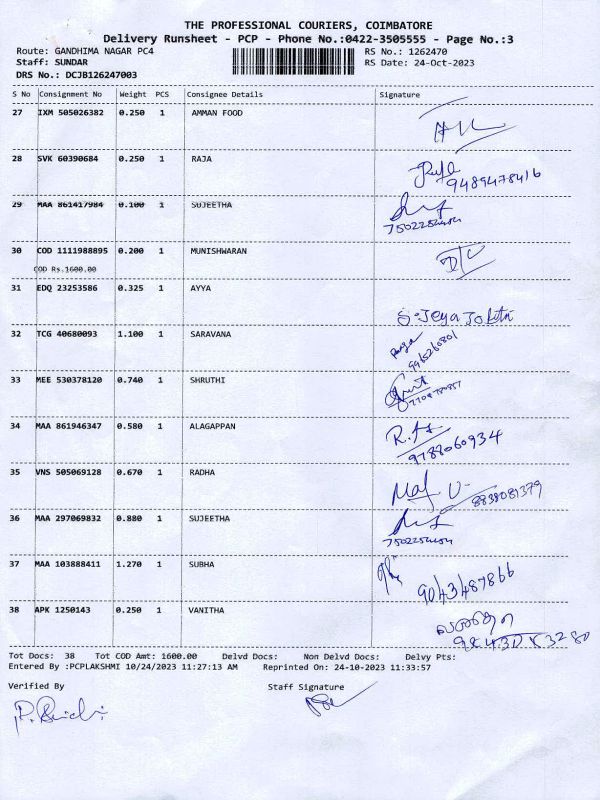 THE PROFESSIONAL COURIERS, COIMBATORE
Delivery Runsheet - PCP - Phone No.:0422-3505555 - Page No.:3
Route: GANDHIMA NAGAR PC4 RS No.: 1262470
Staff: SUNDAR RS Date: 24-Oct-2023
DRS No.: DCJB126247003
S No Consignment No Weight PCS Consignee Details Signature
27 IXM 505026382 0.250 1 AMMAN FOOD
28 SVK 60390684 0.250 1 RAJA
9489478416
29 MAA 861417984 0.100 1 SUJEETHA
30 COD 1111988895 0.200 1 MUNISHWARAN
COD Rs.1600.00
31 EDQ 23253586 0.325 1 AYYA
32 TCG 40680093 1.100 1 SARAVANA
9965260801
33 MEE 530378120 0.740 1 SHRUTHI
34 MAA 861946347 0.580 1 ALAGAPPAN
9788060934
35 VNS 505069128 0.670 1 RADHA
8838081379
36 MAA 297069832 0.880 1 SUJEETHA
37 MAA 103888411 1.270 1 SUBHA
9043487866
38 APK 1250143 0.250 1 VANITHA
Tot Docs: 38 Tot COD Amt: 1600.00 Delvd Docs: Non Delvd Docs: Delvy Pts:
Entered By :PCPLAKSHMI 10/24/2023 11:27:13 AM Reprinted On: 24-10-2023 11:33:57
Verified By Staff Signature